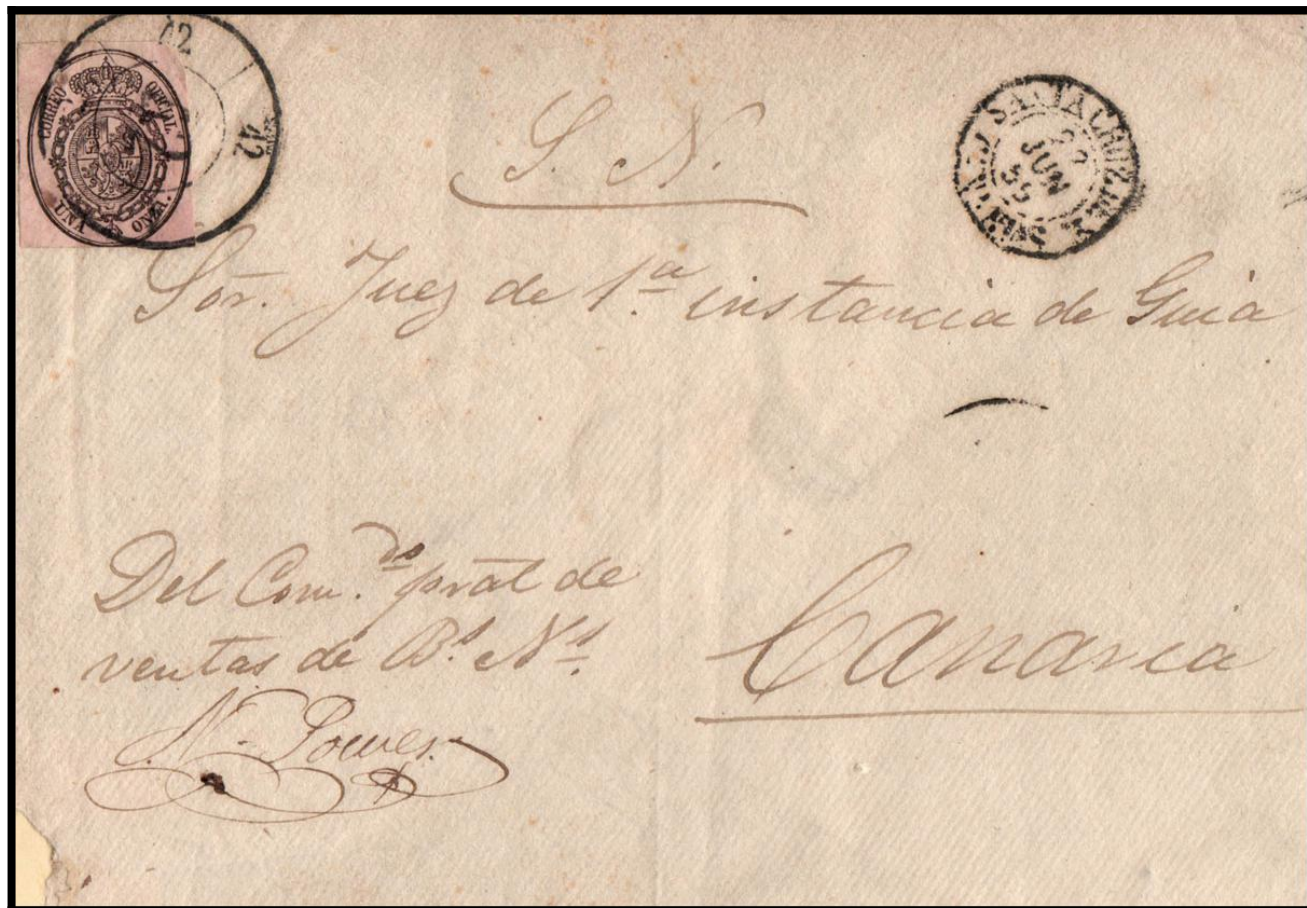 CORREO OFICIAL
UNA ONZA.
42
42
SANTA CRUZ DE T.
JUN
55
S. N.
Sōr. Juez de 1.ª instancia de Guia
Del Com.do pral de
ventas de B.s N.s
N. Power
Canaria